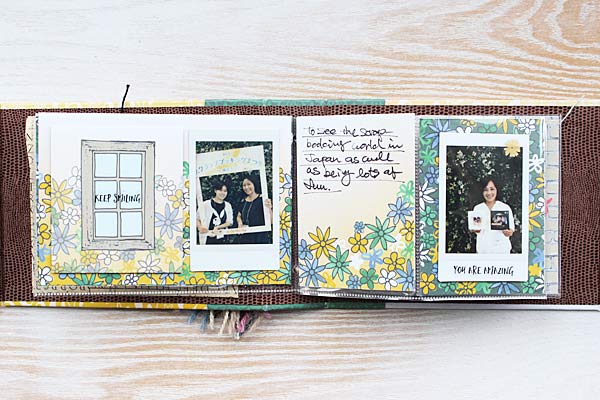 KEEP SMILING
To see the Scrap
booking world in
Japan as well
as being lots of
fun.
YOU ARE AMAZING